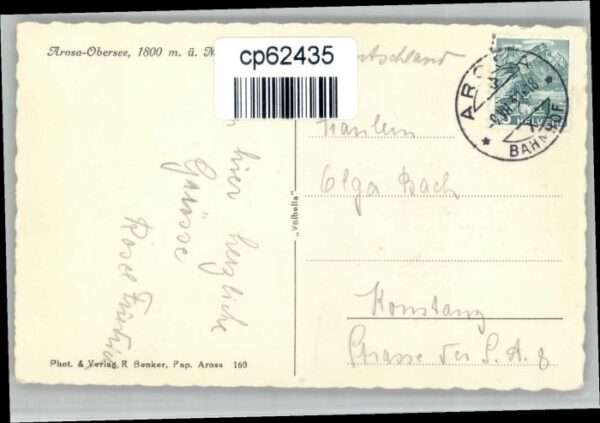 Arosa-Obersee, 1800 m. ü. M
cp62435
Deutschland
AROSA
BAHNHOF
HELVETIA
Fräulein
Olga Bach
Konstanz
Strasse der S. A. 8
hier herzliche
Grüsse
Rosel
"Valbella"
Phot. & Verlag R Benker, Pap. Arosa 160